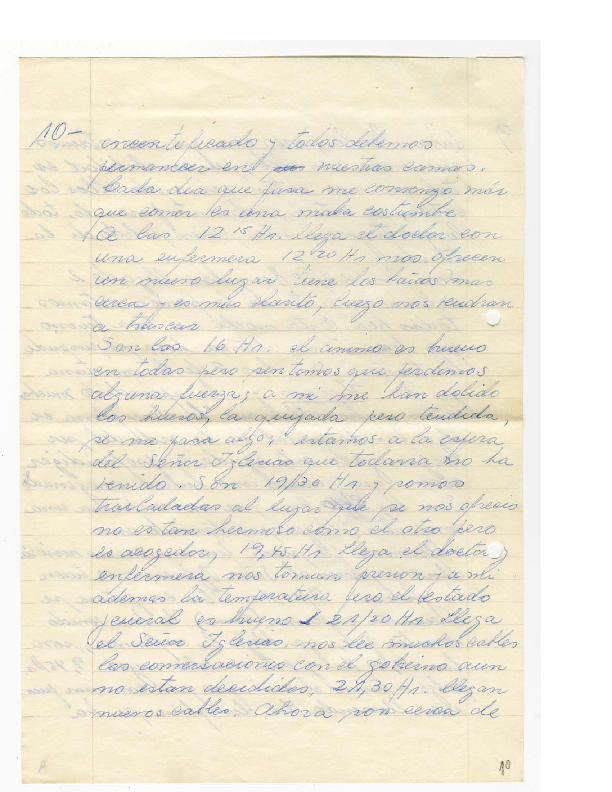 10- incentificado y todos debemos
permanecer en nuestras camas.
Cada dia que pasa me convenzo más
que comer es una mala costumbe
A las 12 15 Hs. llega el doctor con
una enfermera 12 20 Hs nos ofrecen
un nuevo lugar tiene los baños mas
cerca y es mas clarito, luego nos vendran
a buscar
Son las 16 Hs. el animo es bueno
en todas pero sentimos que perdimos
alguna fuerza, a mi me han dolido
los huesos, la quijada pero tendida,
se me pasa algo, estamos a la espera
del Señor Iglesias que todavia no ha
venido. Son 19/30 Hs y somos
trasladadas al lugar que se nos ofrecio
no es tan hermoso como el otro pero
es acogedor, 19,45 Hs llega el doctor y
enfermera nos toman presion y a mi
ademas la temperatura pero el estado
jeneral es bueno 21/20 Hs llega
el Señor Iglesias, nos lee muchos cables
las conversaciones con el gobierno aun
no estan decididas, 21,30 Hs. llegan
nuevos cables. Ahora son cerca de
10